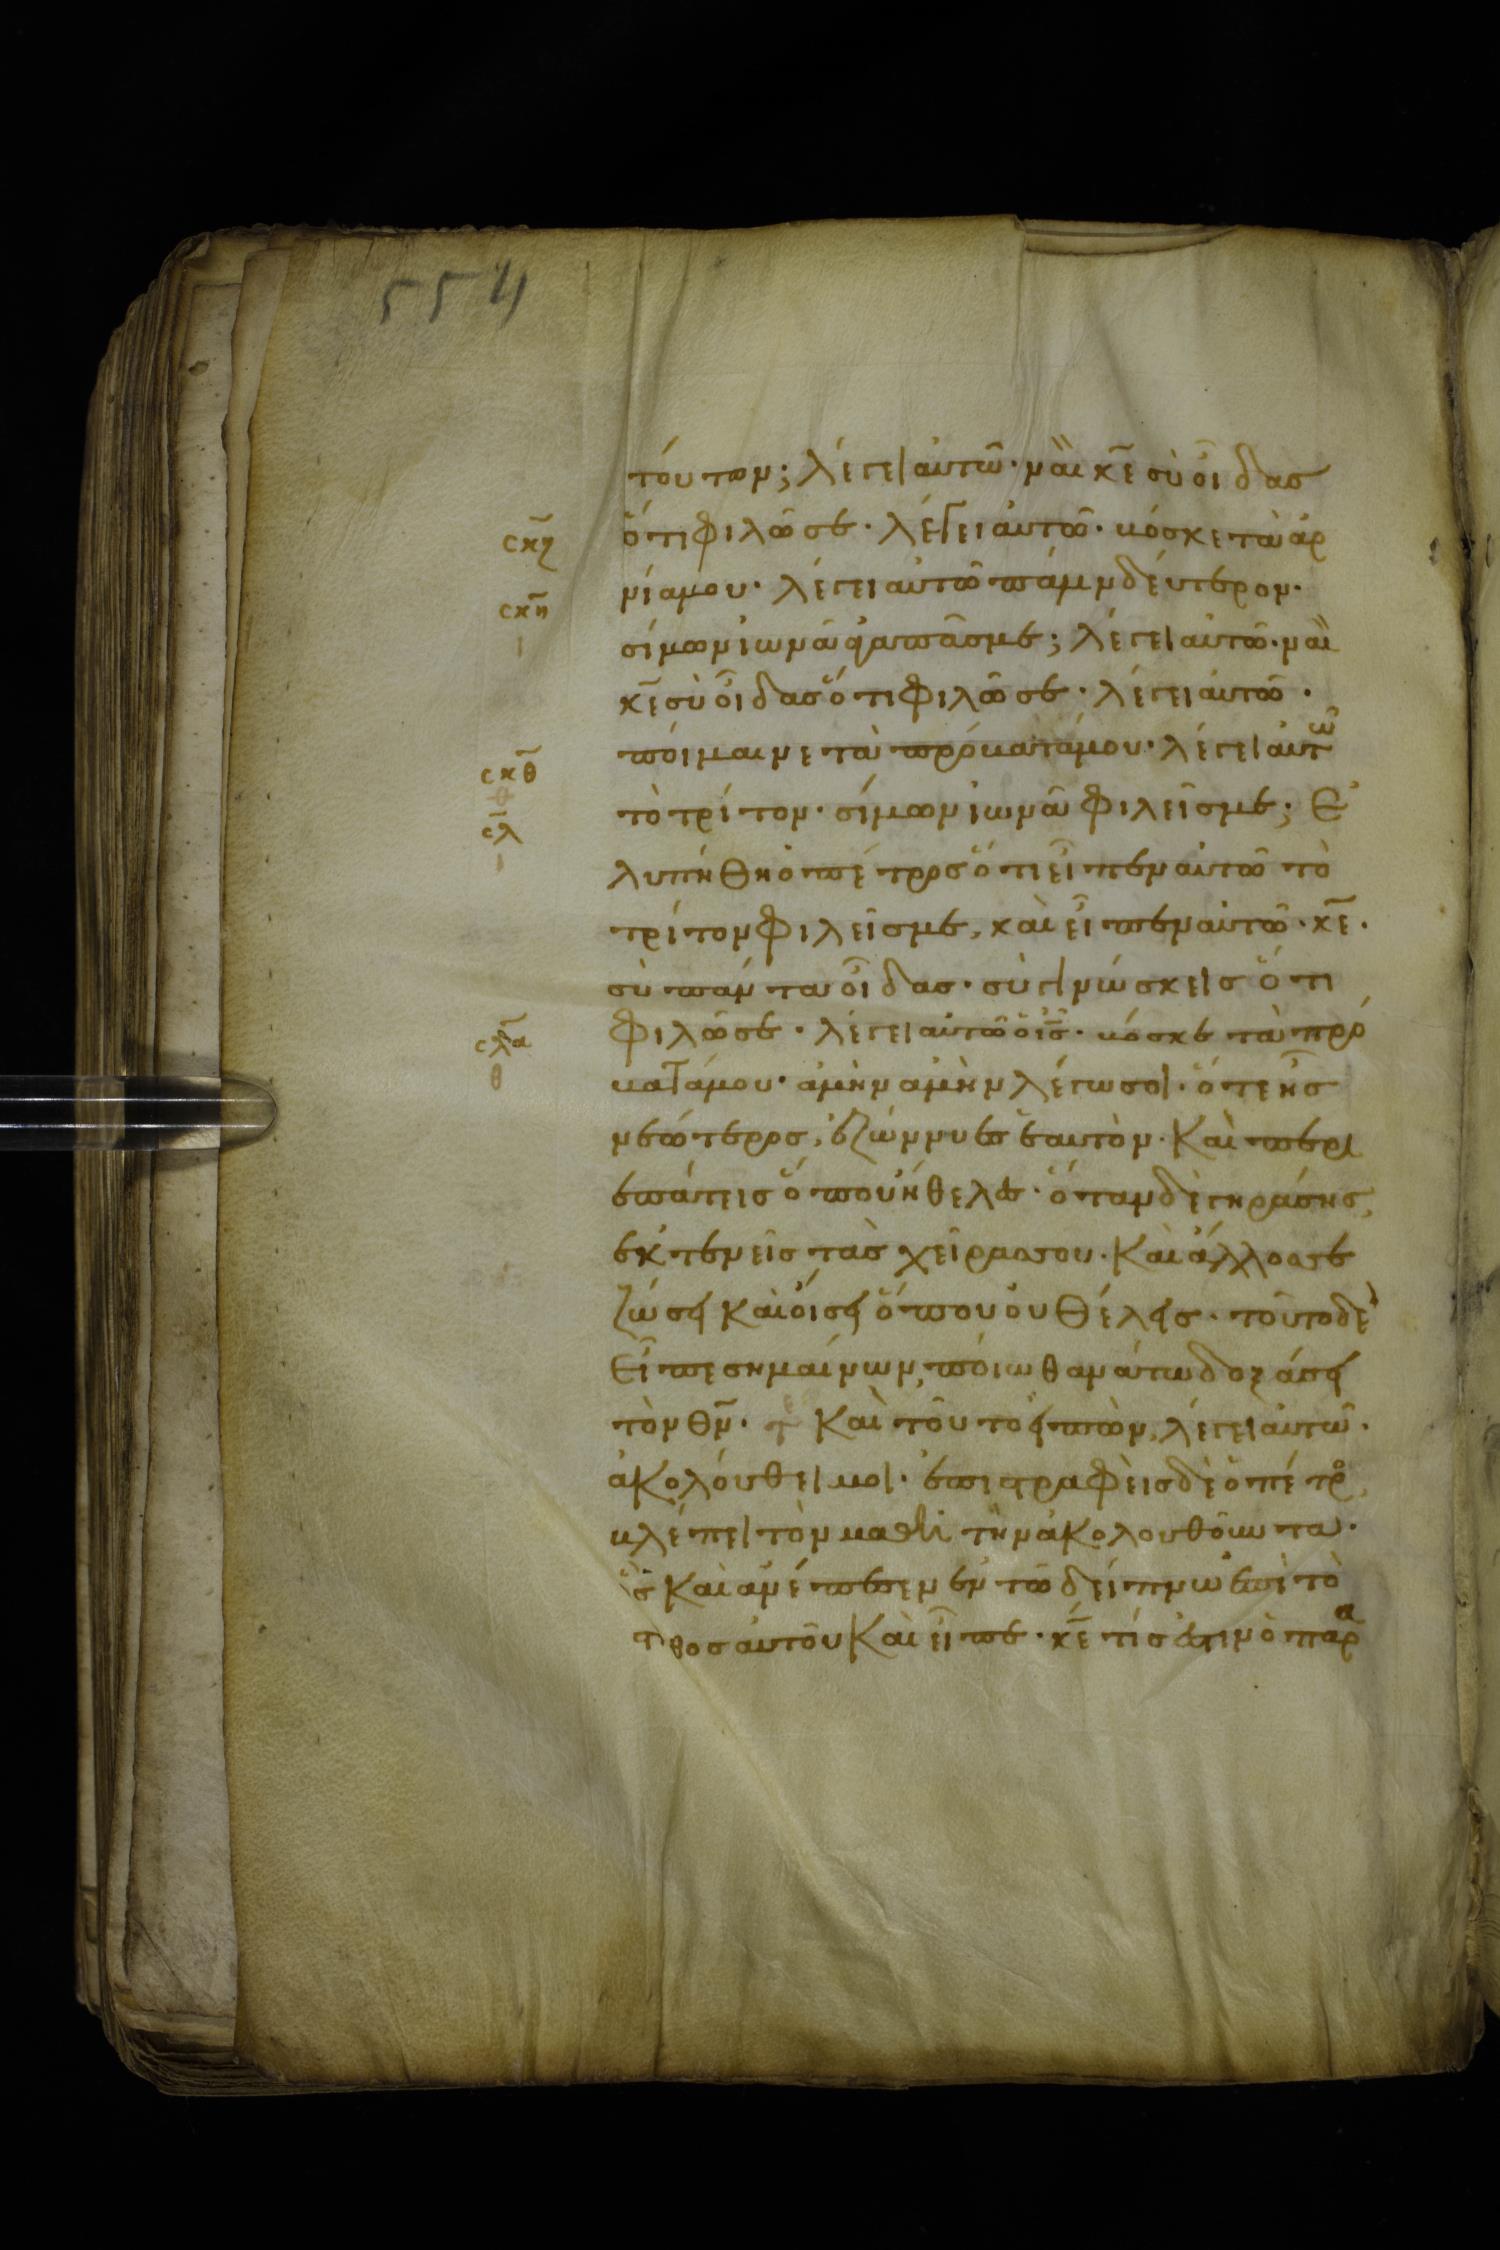 554
τούτων; λέγει αὐτῶ· ναὶ κ̅ε̅ σὺ οἶδας
σκζ ὅτι φιλῶ σε· λέγει αὐτῶ· βόσκε τὰ ἀρ
νία μου· λέγει αὐτῶ πάλιν δεύτερον·
σκη
ι
σίμων ἰωνᾶ ἀγαπᾶς με; λέγει αὐτῶ· ναὶ
κ̅ε̅ σὺ οἶδας ὅτι φιλῶ σε· λέγει αὐτῶ·
σκθ ποίμαινε τὰ πρόβατά μου· λέγει αὐτῶ
σλ
ι
τὸ τρίτον· σίμων ἰωνᾶ φιλεῖς με; ἐ
λυπήθη ὁ πέτρος ὅτι εἶπεν αὐτῶ τὸ
τρίτον φιλεῖς με, καὶ εἶπεν αὐτῶ· κ̅ε̅·
σὺ πάντα οἶδας· σὺ γινώσκεις ὅτι
σλα
θ
φιλῶ σε· λέγει αὐτῶ ὁ ι̅ς̅· βόσκε τὰ πρό
βατά μου· ἀμὴν ἀμὴν λέγω σοι· ὅτε ἦς
νεώτερος, ἐζώννυες ἑαυτὸν· καὶ περι
επάτεις ὅπου ἤθελες· ὅταν δὲ γηράσης,
ἐκτενεῖς τὰς χεῖρας σου· καὶ ἄλλος σε
ζώσει καὶ οἴσει ὅπου οὐ θέλεις· τοῦτο δὲ
εἶπε σημαίνων, ποίω θανάτω δοξάσει
τὸν θ̅ν̅· καὶ τοῦτο εἰπὼν, λέγει αὐτῶ·
ἀκολούθει μοι· ἐπιστραφεὶς δὲ ὁ πέτρ,
βλέπει τὸν μαθητὴν ἀκολουθοῦντα·
ὃς καὶ ἀνέπεσεν ἐν τῶ δείπνω ἐπὶ τὸ
στῆθος αὐτοῦ καὶ εἶπε· κ̅ε̅ τίς ἐστιν ὁ παρα